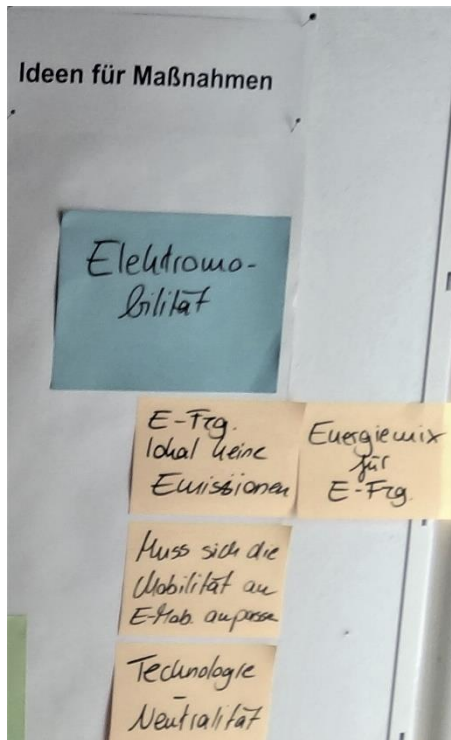 Ideen für Maßnahmen
Elektromo-
bilität
E-Fzg.
lokal keine
Emissionen
Energiemix
für
E-Fzg.
Muss sich die
Mobilität an
E-Mob. anpassen
Technologie
-
Neutralität